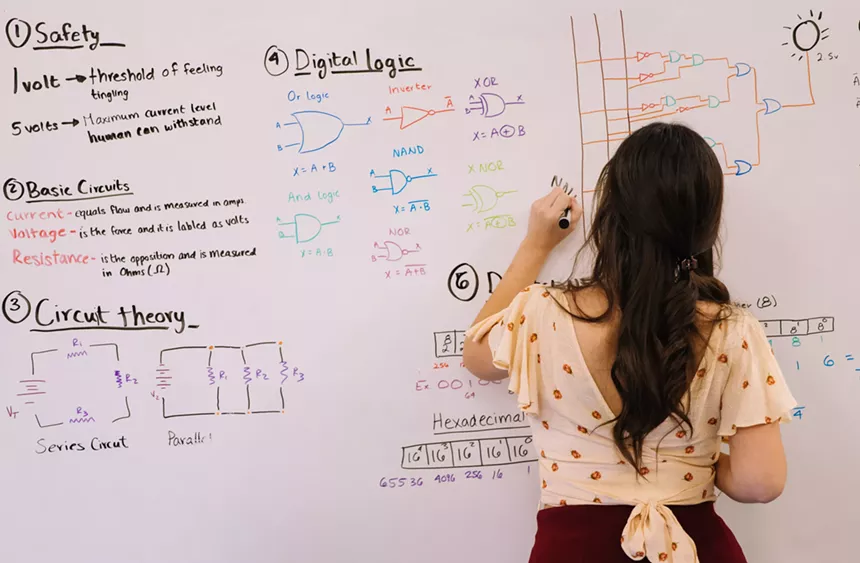 ① Safety
1 volt → threshold of feeling
tingling
5 volts → Maximum current level
human can withstand
② Basic Circuits
Current - equals flow and is measured in amps
Voltage - is the force and it is labled as volts
Resistance - is the opposition and is measured
in Ohms (Ω)
③ Circut theory
R₁
R₂
R₃
V_T
Series Circut
R₁
R₂
R₃
Parallel
④ Digital logic
Or logic
A
B
X
X = A + B
Inverter
A
A̅
XOR
A
B
X
X = A ⊕ B
NAND
A
B
X
X = \overline{A · B}
X NOR
X = \overline{A ⊕ B}
And logic
X = A · B
NOR
A
B
X
X = \overline{A + B}
2.5v
⑤ D
(8)
8¹ 8⁰
8 1
256
Ex. 00100
64
6 =
Hexadecimal
16⁴ 16³ 16² 16¹ 16⁰
65536 4096 256 16 1